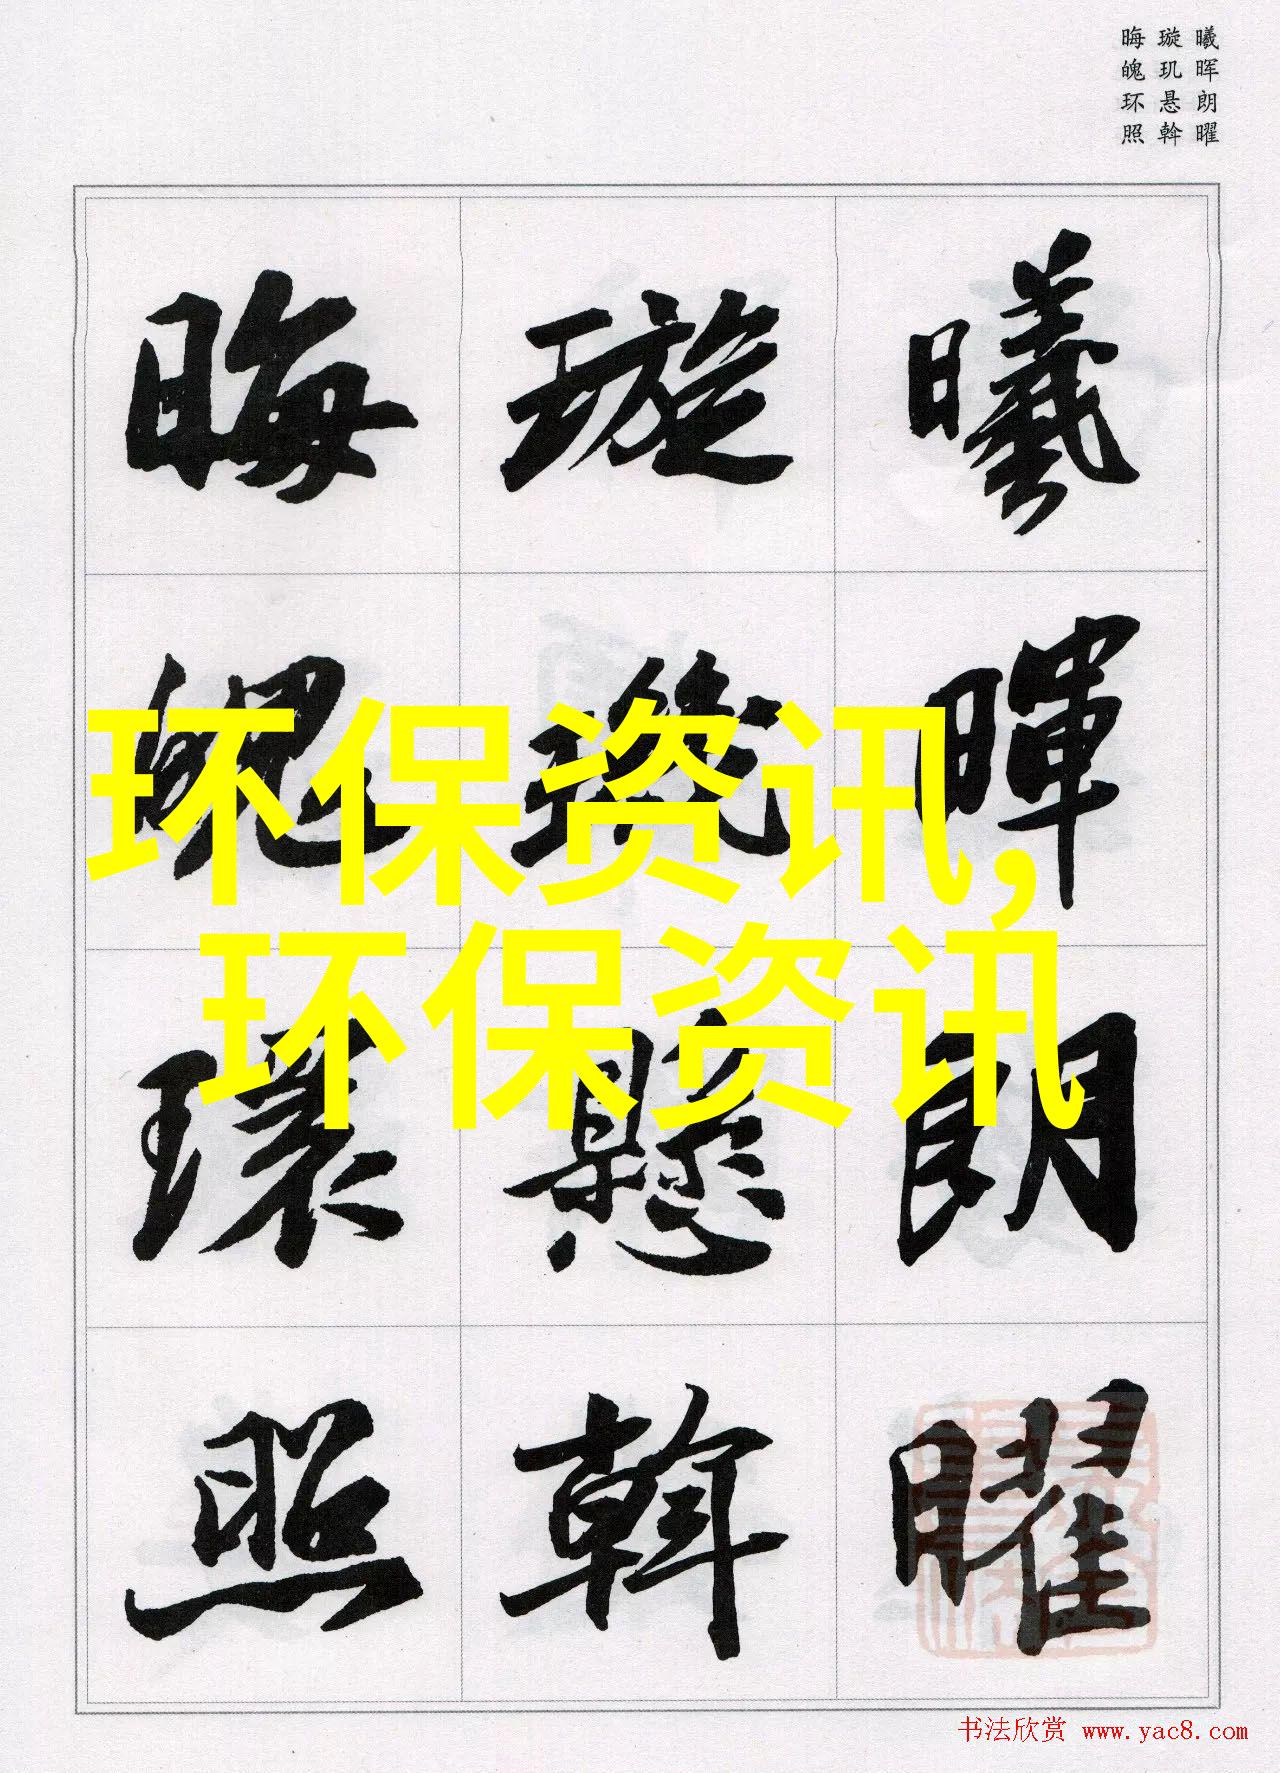 曦晖朗曜
璇玑悬斡
晦魄环照
曦暉朗曜
璇璣懸斡
晦魄環照
环保资讯,
环保资讯
书法欣赏 www.yac8.com